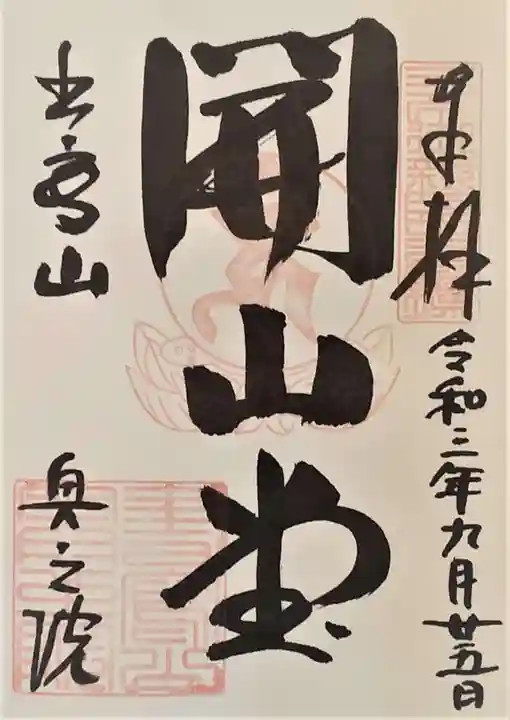 奉拝 令和三年九月廿五日
開山堂
書寫山 奥之院